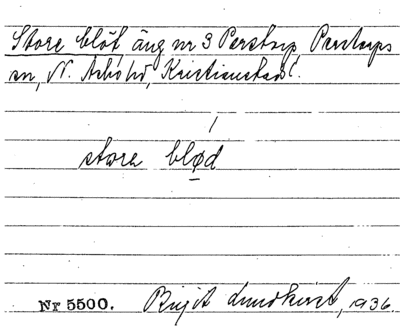 Store blöt äng nr 3 Perstorp Perstorps
sn, N. Åsbo hd, Kristianstads l.
stora blød
Nr 5500. Birgit Lundkvist, 1936.